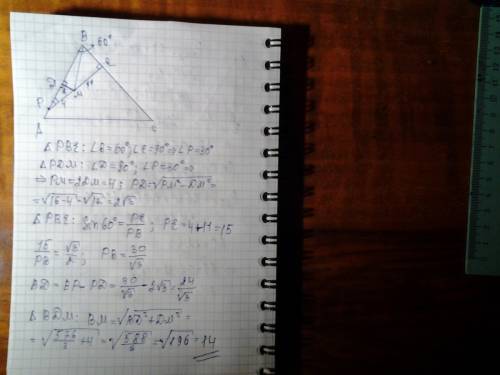 B 60°
E
D
P 4 M 11
A C
△ PBE: ∠B=60°; ∠E=90° ⇒ ∠P=30°
△ PDM: ∠D=90°; ∠P=30° ⇒
⇒ PM=2DM=4; PD=√PM²-DM²=
=√16-4=√12=2√3
△ PBE: Sin60°=PE/PB; PE=4+11=15
15/PB=√3/2; PB=30/√3
BD=BP-PD=30/√3-2√3=24/√3
△ BDM: BM=√BD²+DM²=
=√576/3+4=√588/3=√196=14